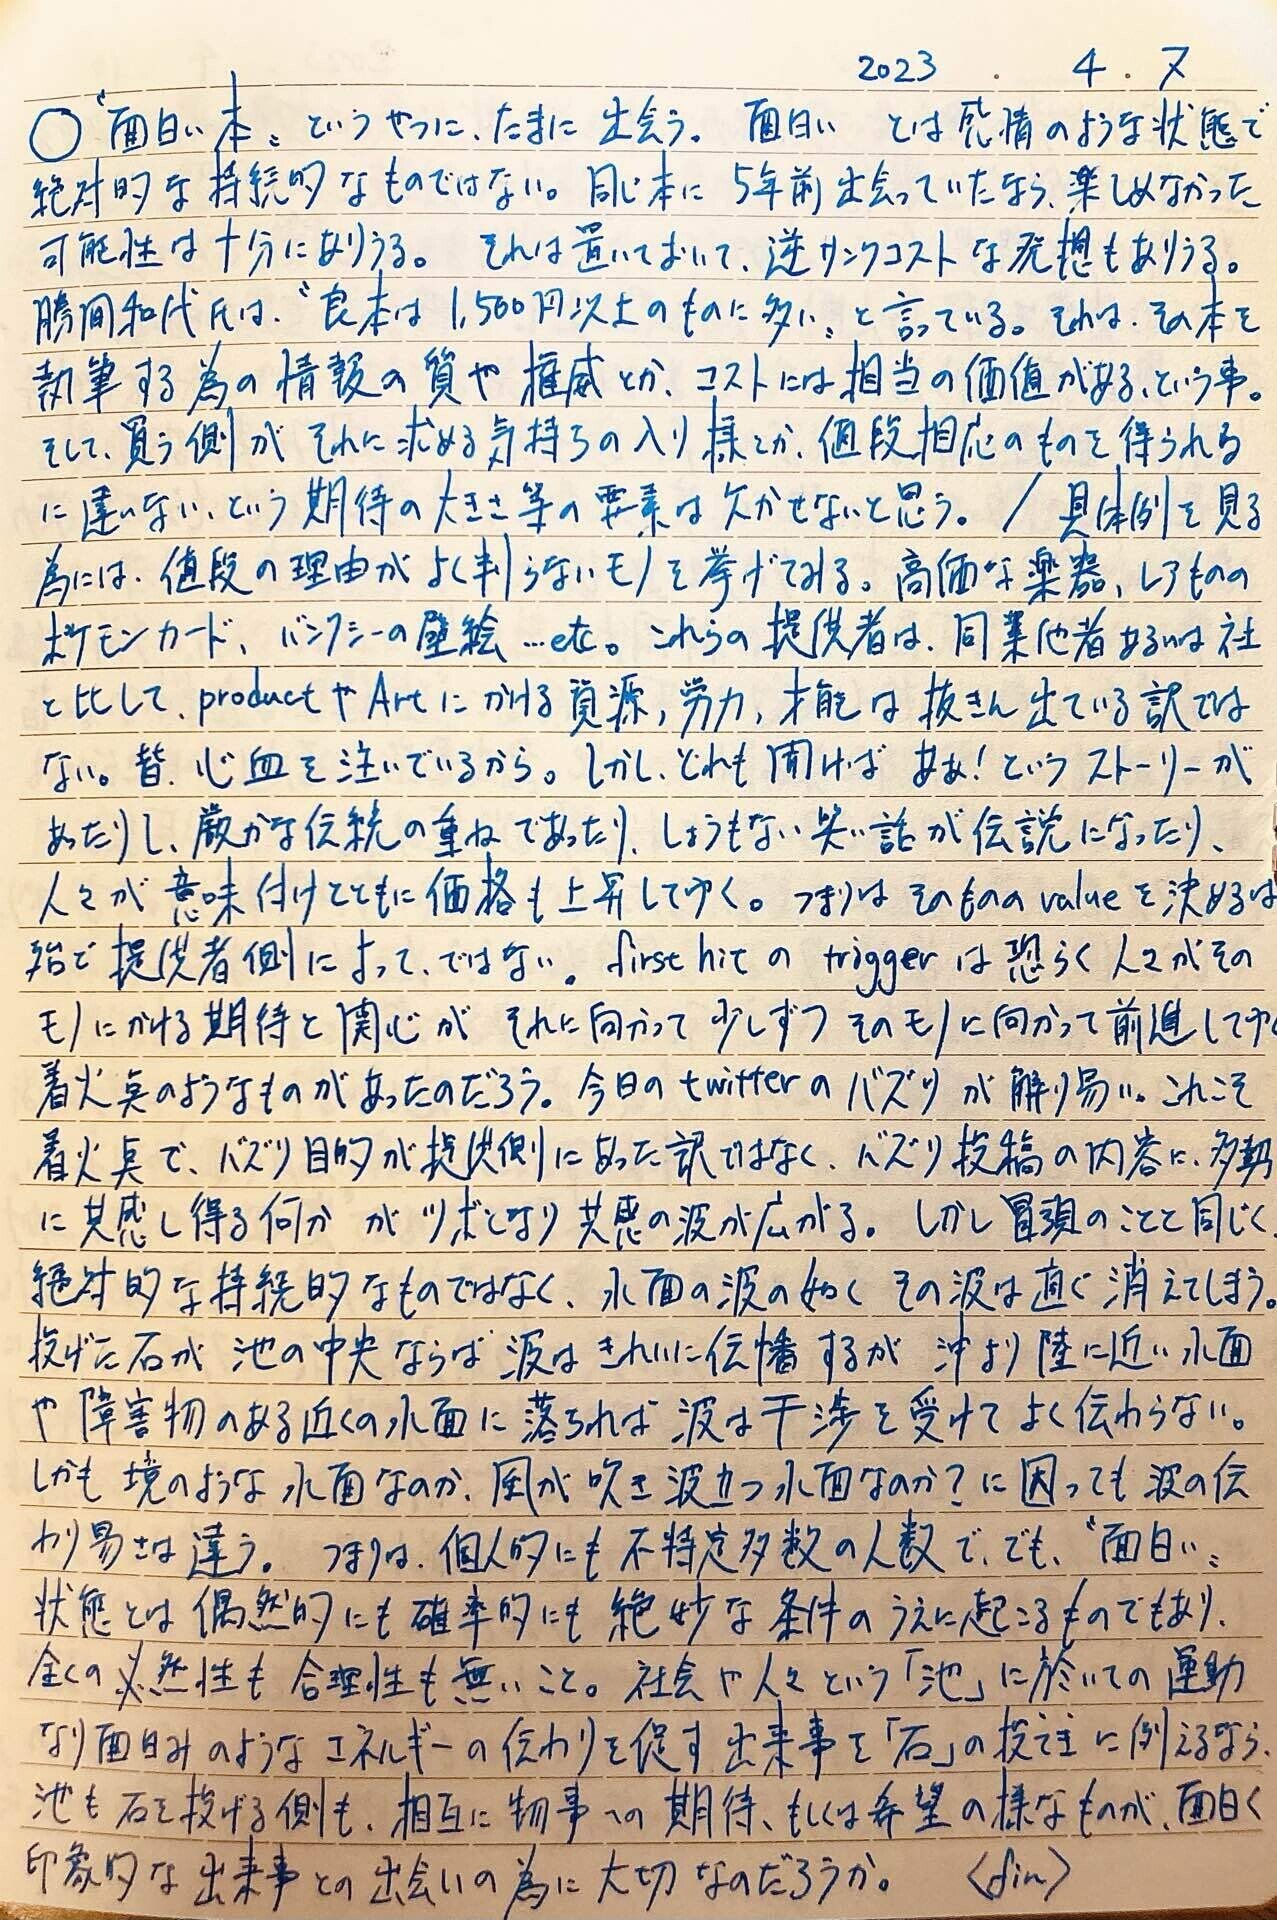 2023 . 4 . 7
○ 〝面白い本〟というやつに、たまに出会う。 面白い とは感情のような状態で
絶対的な持続的なものではない。同じ本に 5年前出会っていたなら、楽しめなかった
可能性は十分にありうる。 それは置いておいて、逆サンクコストな発想もありうる。
勝間和代氏は、〝良本は1,500円以上のものに多い〟と言っている。それは、その本を
執筆する為の情報の質や権威とか、コストには相当の価値がある、という事。
そして、買う側がそれに求める気持ちの入り様とか、値段相応のものを得られる
に違いない、という期待の大きさ等の要素は欠かせないと思う。/具体例を見る
為には、値段の理由がよく判らないモノを挙げてみる。高価な楽器、レアものの
ポケモンカード、バンクシーの壁絵…etc。これらの提供者は、同業他者あるいは社
と比して、productやArtにかける資源,労力,才能は抜きん出ている訳では
ない。皆、心血を注いでいるから。しかし、どれも聞けばああ!というストーリーが
あったりし、厳かな伝統の重ねであったり、しょうもない笑い話が伝説になったり、
人々が意味付けとともに価格も上昇してゆく。つまりはそのもののvalueを決めるは
殆ど提供者側によって、ではない。first hitのtriggerは恐らく人々がその
モノにかける期待と関心がそれに向かって少しずつそのモノに向かって前進してゆく
着火点のようなものがあったのだろう。今日のtwitterのバズりが解り易い。これこそ
着火点で、バズり目的が提供側にあった訳ではなく、バズり投稿の内容に、多勢
に共感し得る何かがツボとなり共感の波が広がる。しかし冒頭のことと同じく、
絶対的な持続的なものではなく、水面の波の如くその波は直ぐ消えてしまう。
投げた石が池の中央ならば波はきれいに伝播するが沖より陸に近い水面
や障害物のある近くの水面に落ちれば波は干渉を受けてよく伝わらない。
しかも境のような水面なのか、風が吹き波立つ水面なのか?に因っても波の伝
わり易さは違う。 つまりは、個人的にも不特定多数の人数で、でも、〝面白い〟
状態とは偶然的にも確率的にも絶妙な条件のうえに起こるものでもあり、
全くの必然性も合理性も無いこと。社会や人々という「池」に於いての運動
なり面白みのようなエネルギーの伝わりを促す出来事を「石」の投主に例えるなら、
池も石を投げる側も、相互に物事への期待、もしくは希望の様なものが、面白く
印象的な出来事との出会いの為に大切なのだろうか。 〈fin〉